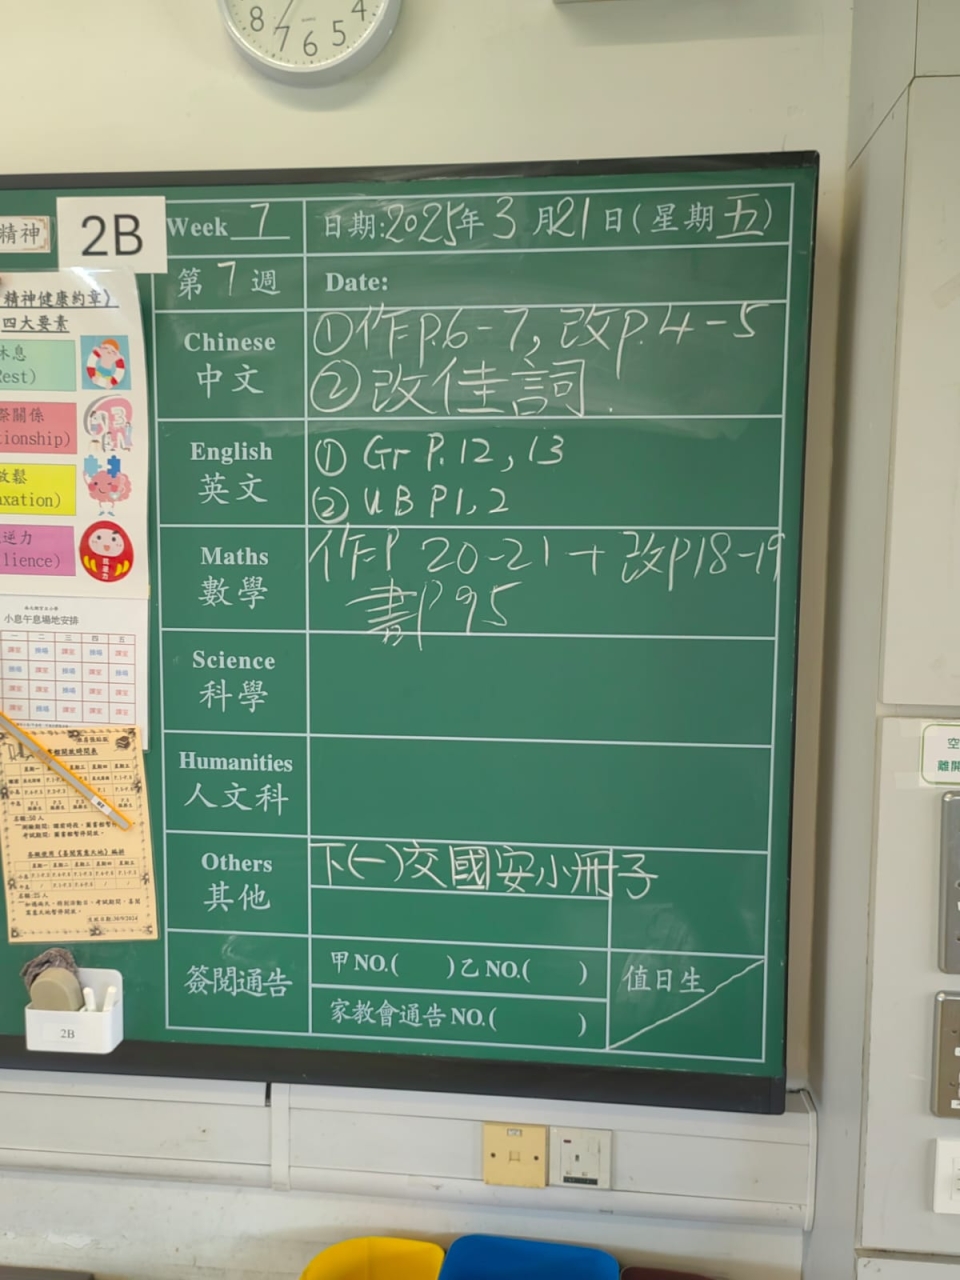 8 7 6 5 4
精神
2B
Week 7
日期:2025年3月21日(星期五)
第7週
Date:
精神健康約章》
四大要素
休息
Rest)
際關係
tionship)
放鬆
axation)
逆力
lience)
Chinese
中文
①作P.6-7,改P.4-5
②改佳詞.
English
英文
① Gr P.12,13
② UB P1,2
Maths
數學
作P 20-21+改P18-19
書P95
Science
科學
Humanities
人文科
Others
其他
下(一)交國安小冊子
簽閱通告
甲NO.( )乙NO.( )
家教會通告NO.( )
值日生
小息午息場地安排
一 二 三 四 五
2B
空
離開